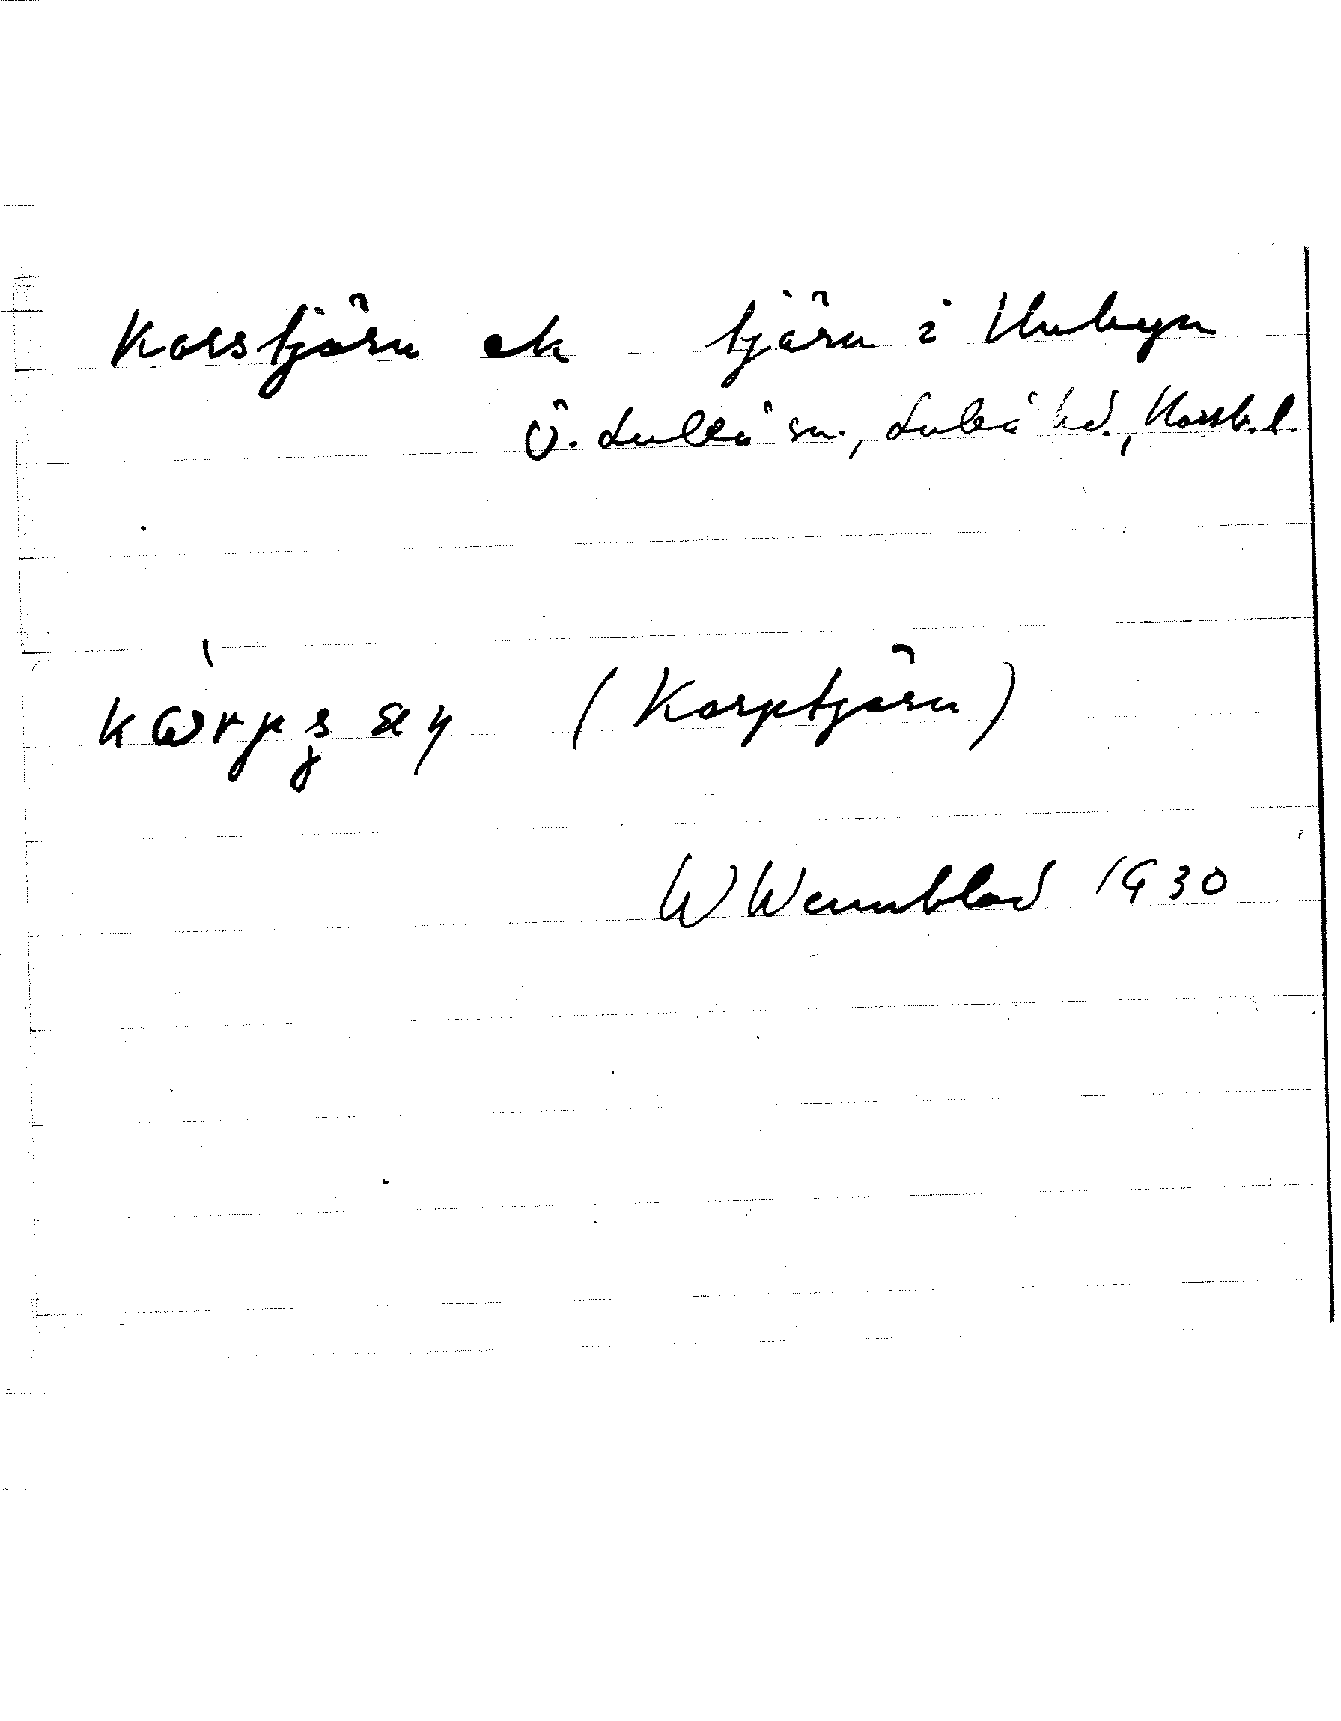 Korstjärn ek tjärn i Unbyn
Ö. Luleå sn., Luleå hd., Norrb. l.
(Korptjärn)
W Wennblad 1930